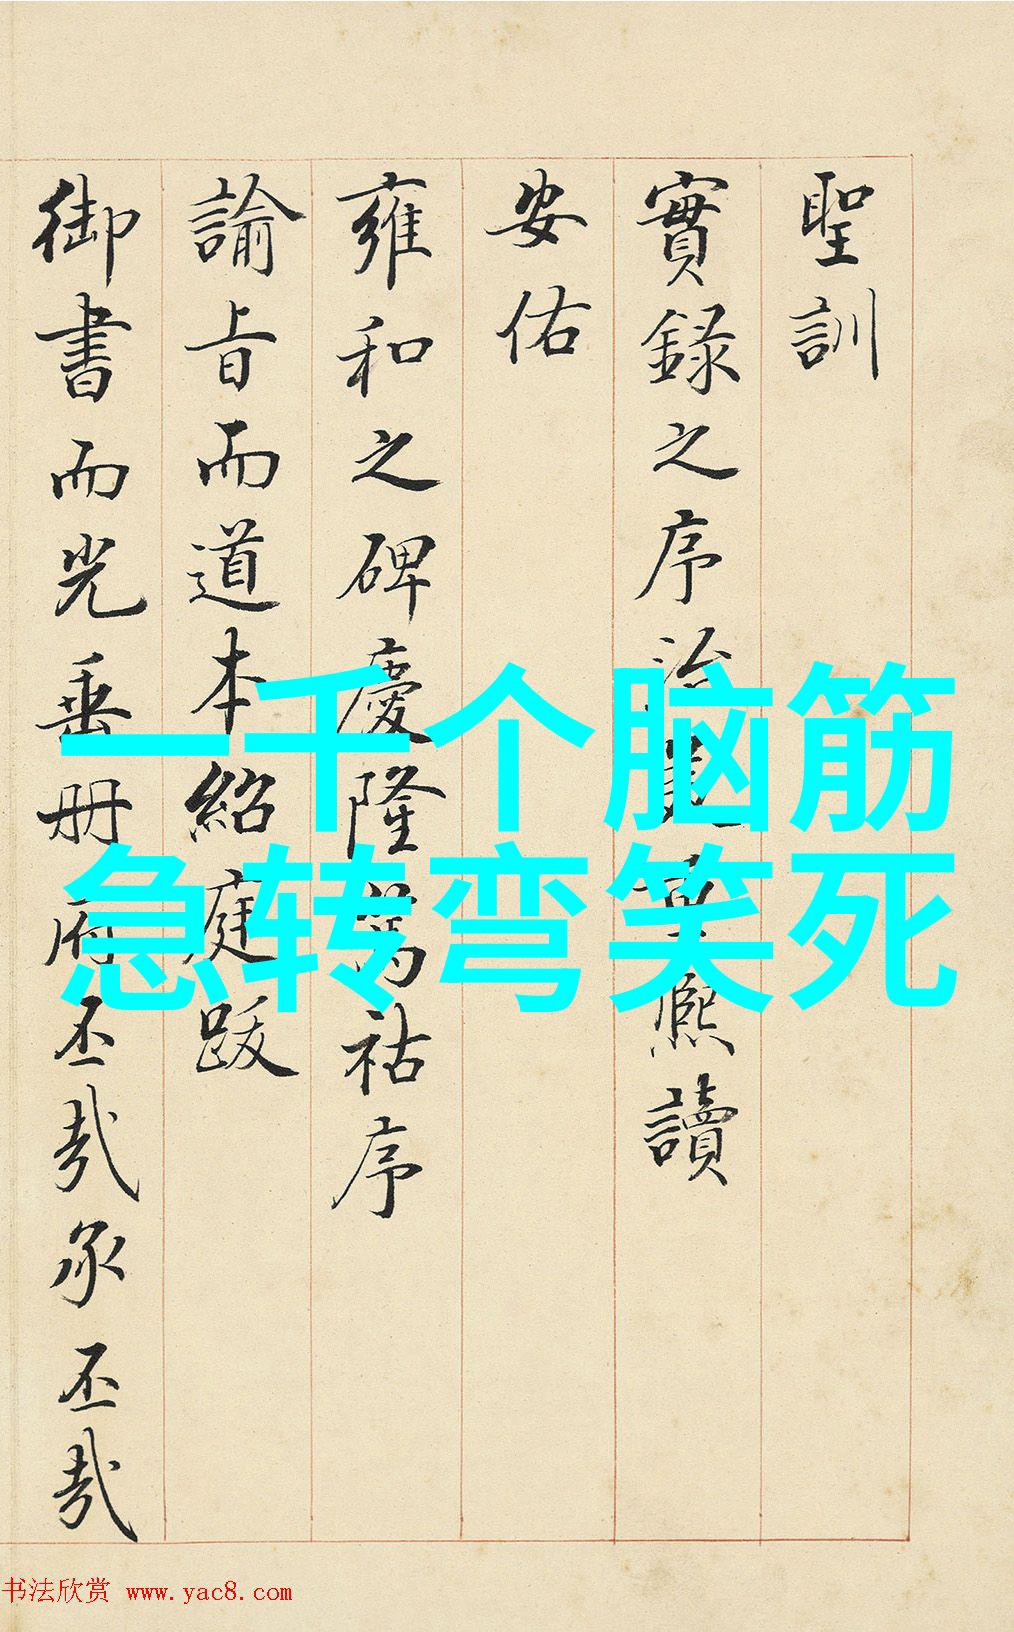 聖訓
實録之序治 熈讀
安佑
雍和之碑慶隆萬祜序
諭旨而道本紹庭跋
御書而光垂册府丕哉承丕哉
一千个脑筋
急转弯笑死
书法欣赏 www.yac8.com